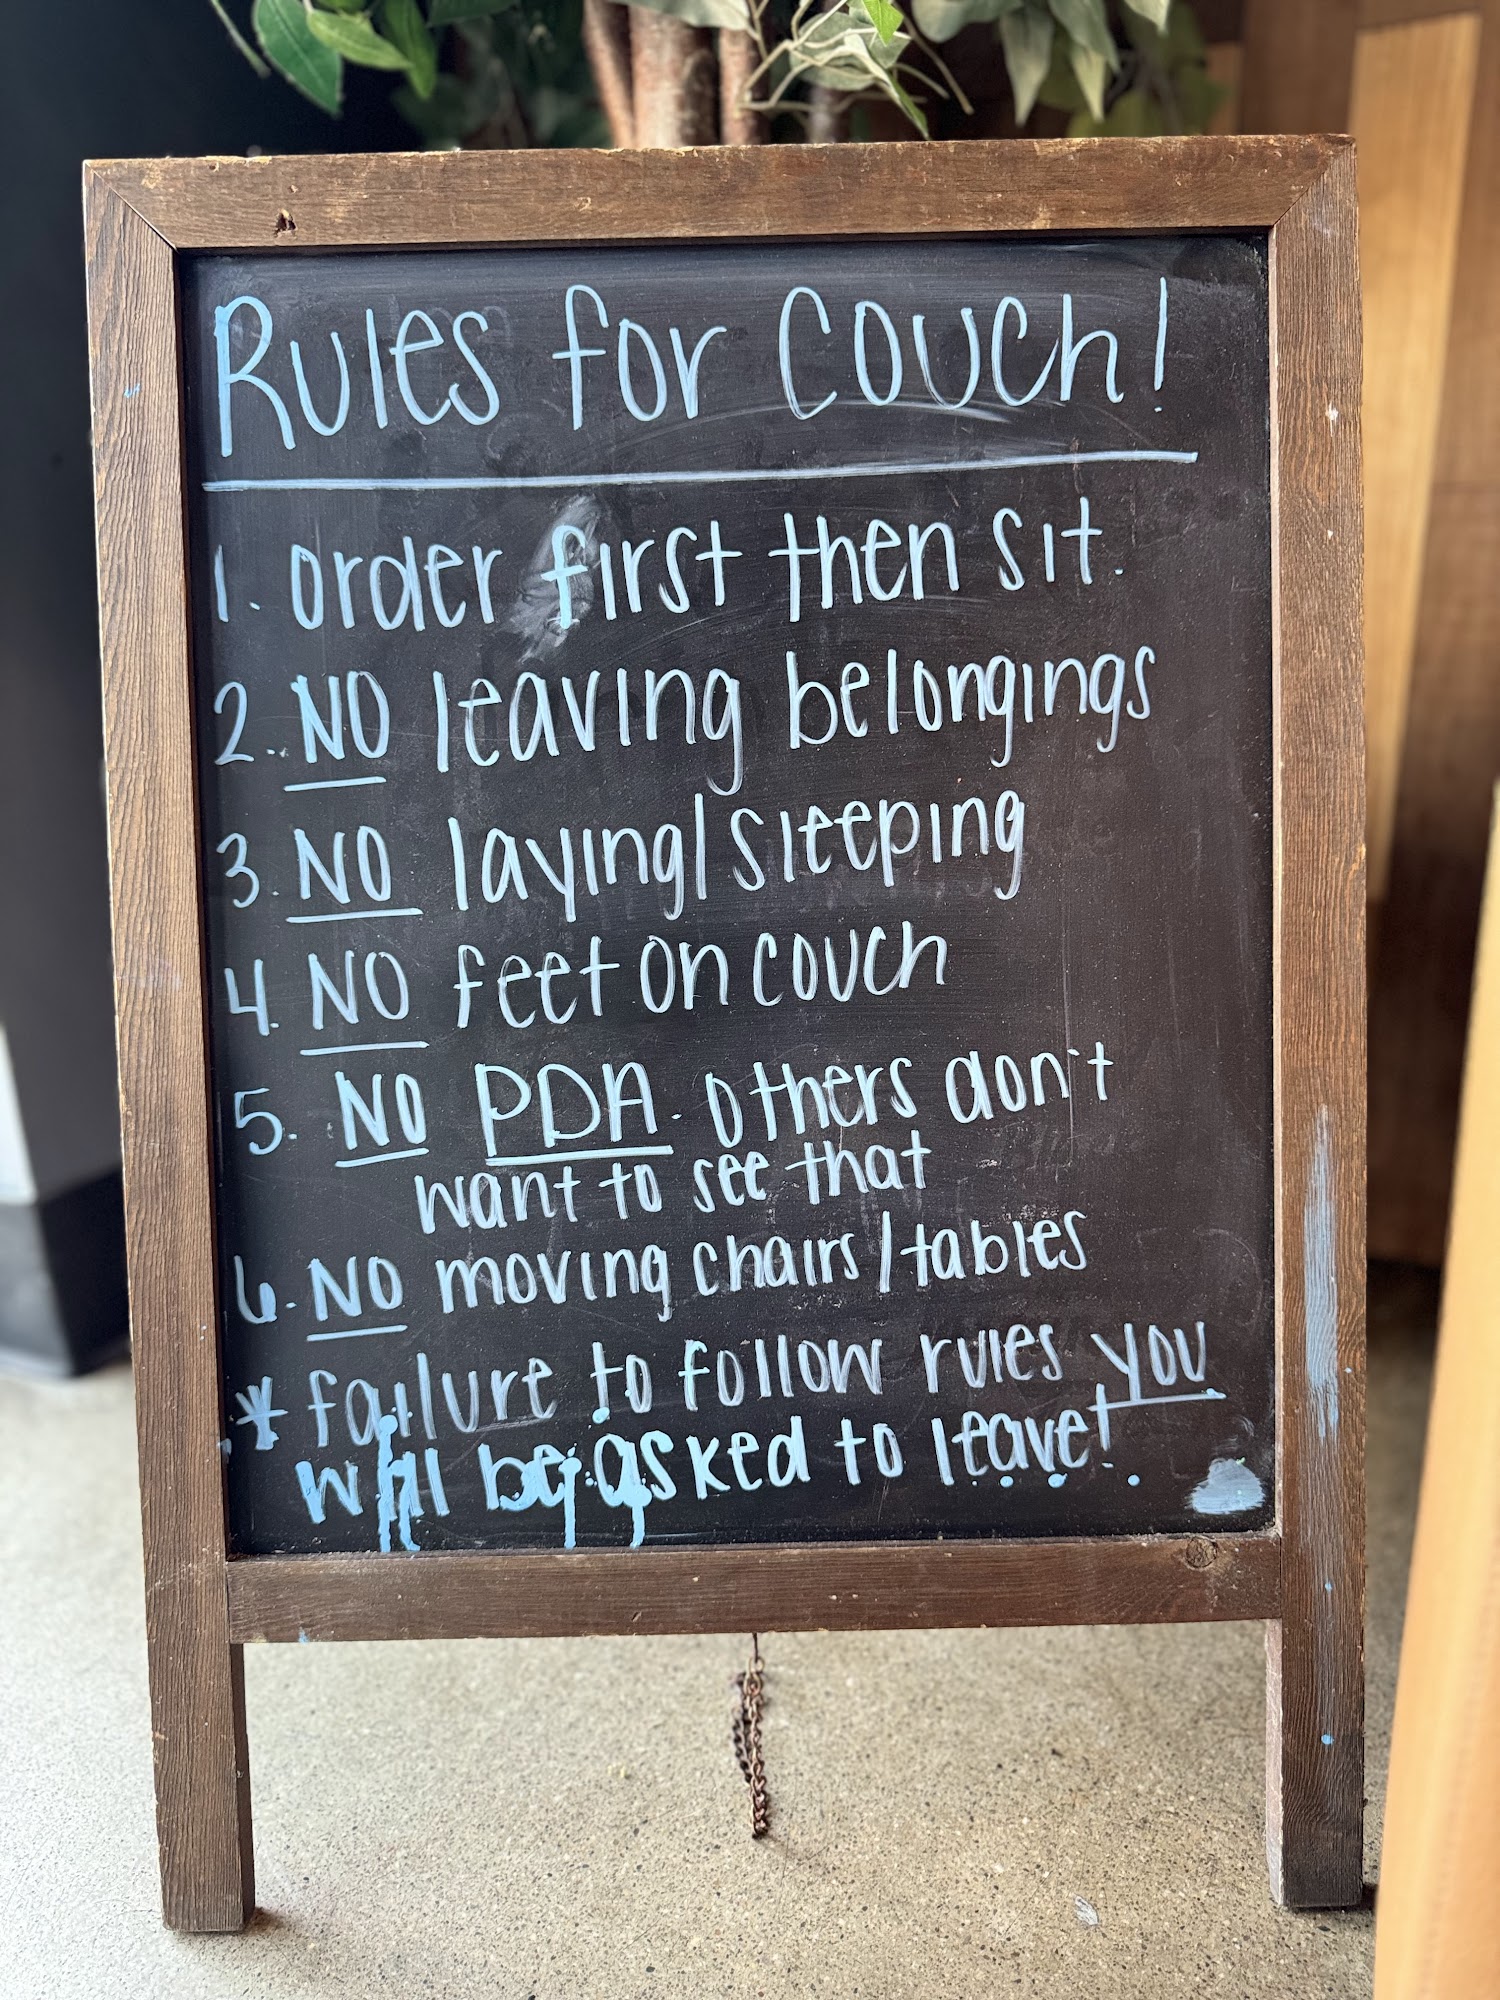 Rules for couch!
1. order first then sit.
2. NO leaving belongings
3. NO laying/sleeping
4. NO feet on couch
5. NO PDA. others don't
want to see that
6. NO moving chairs/tables
* failure to follow rules you
will be asked to leave!